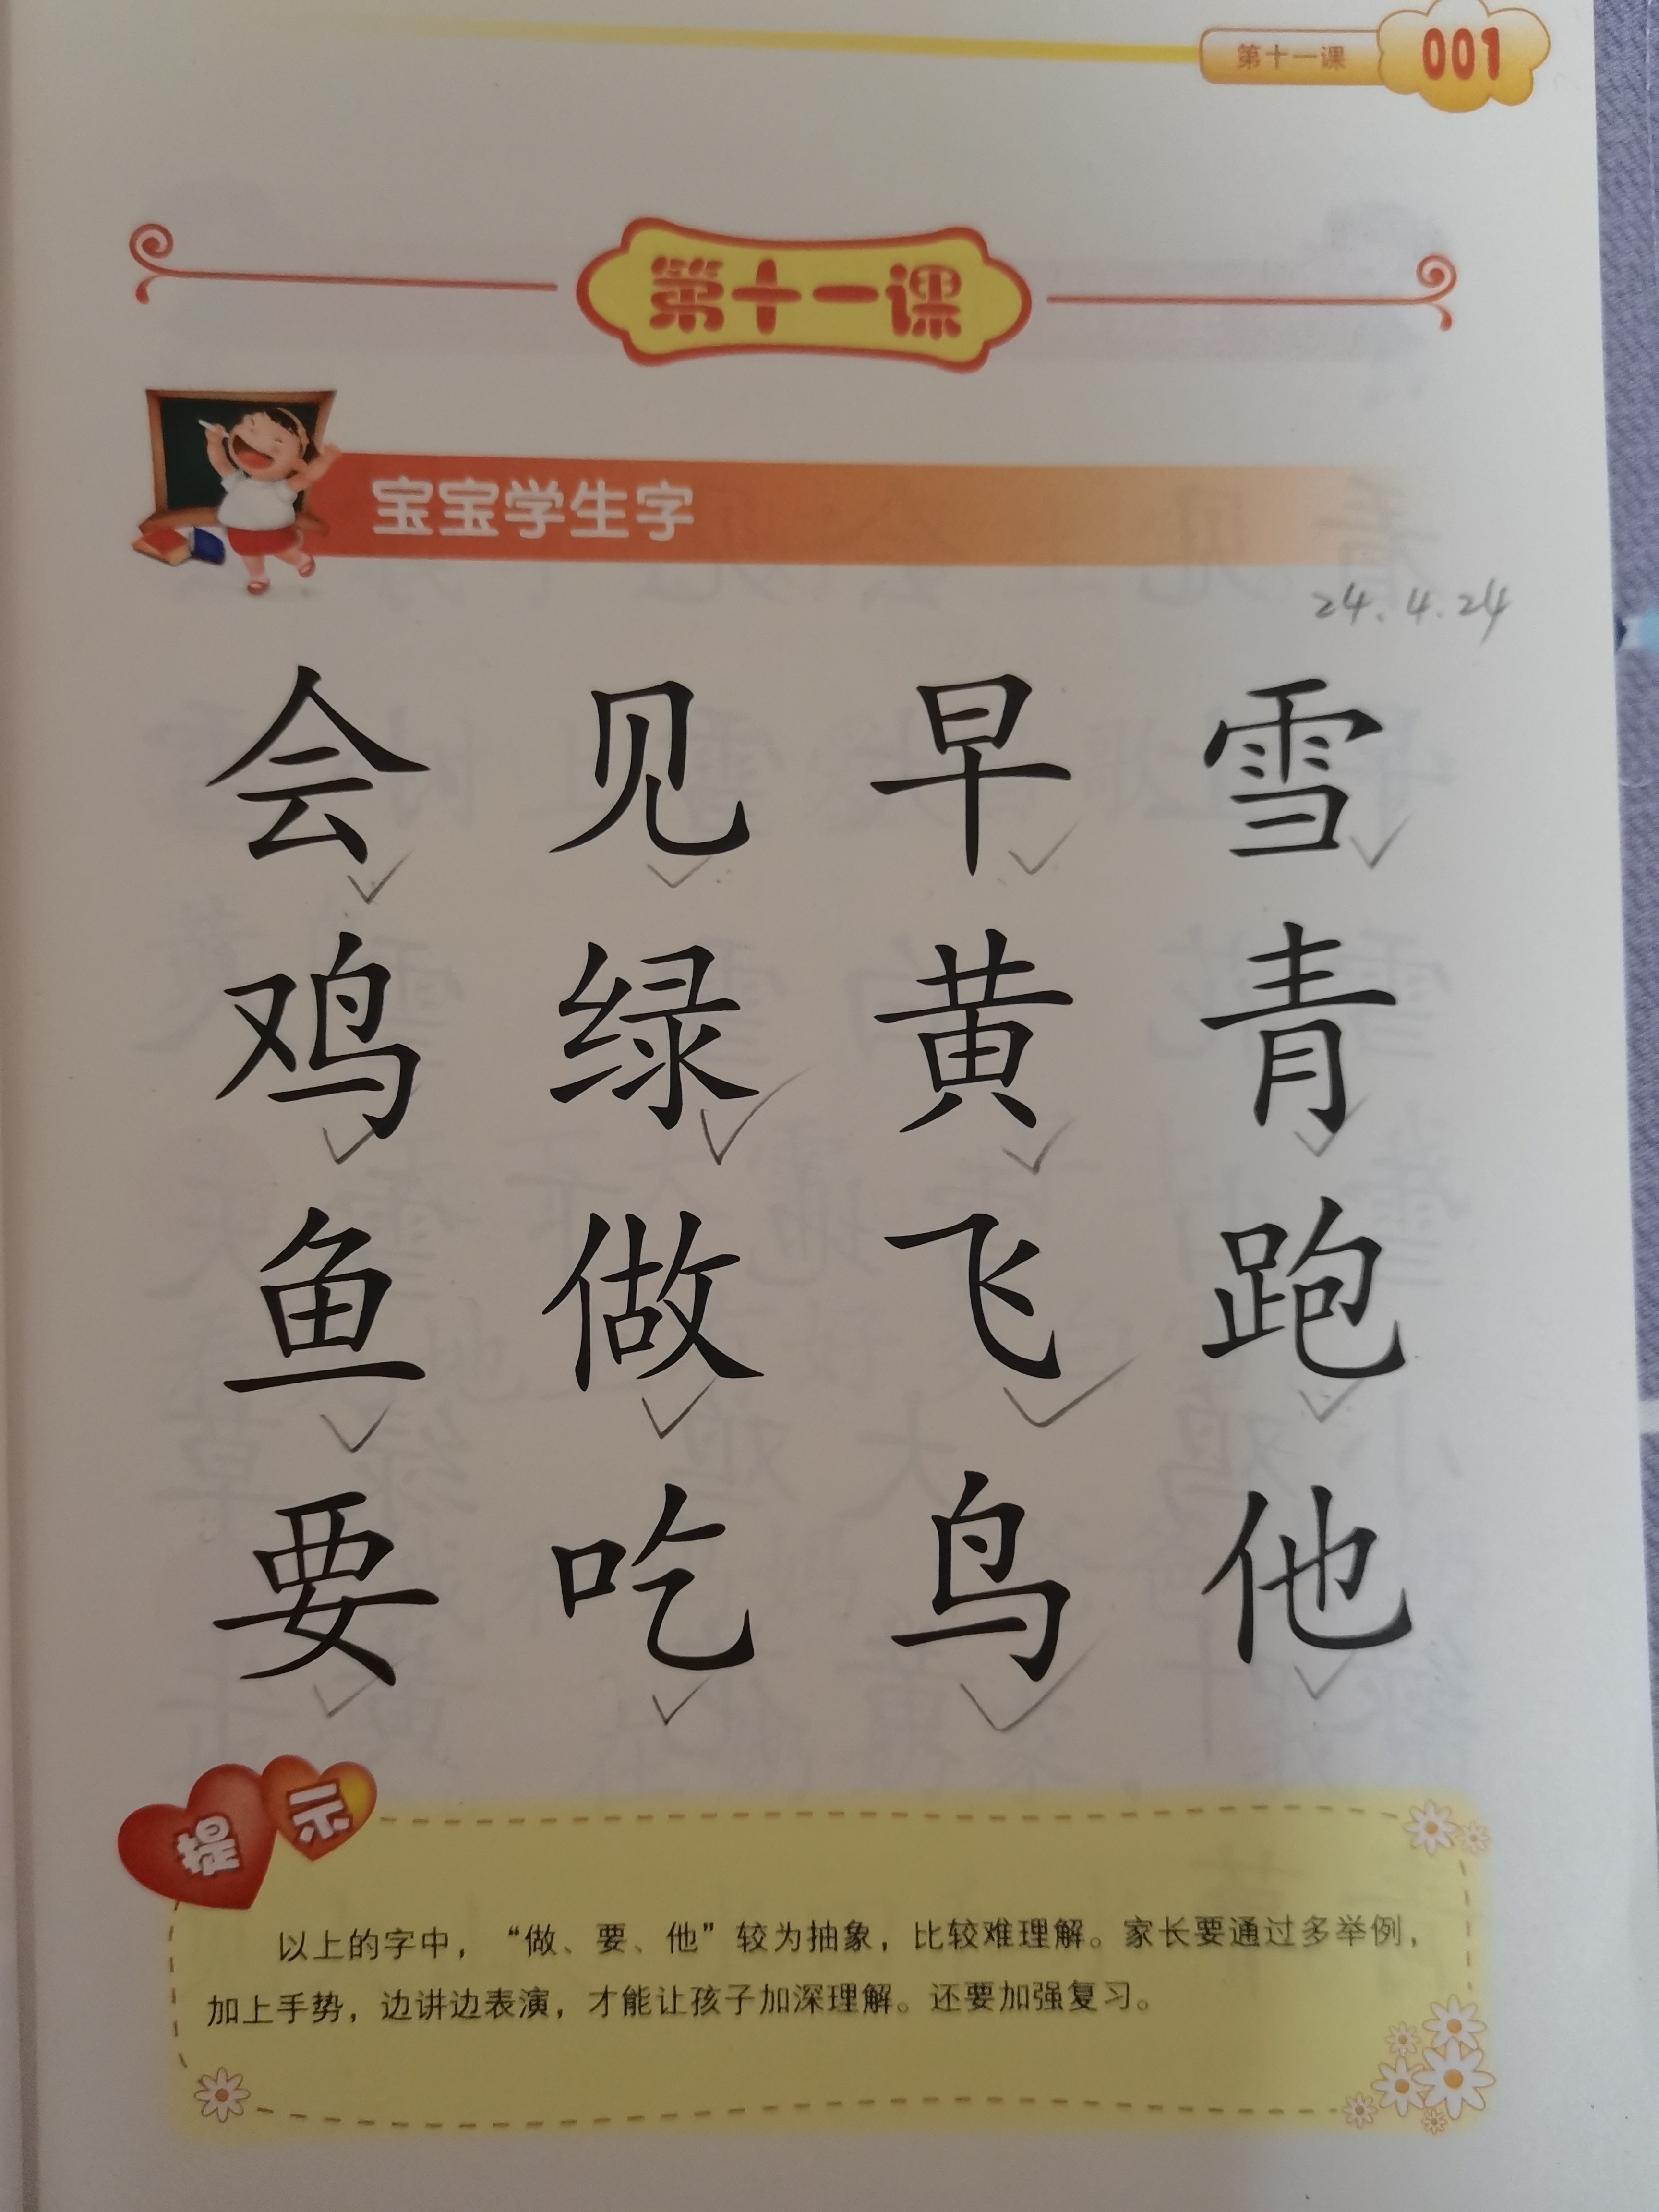 第十一课 001
第十一课
宝宝学生字
24.4.24
会 见 早 雪
鸡 绿 黄 青
鱼 做 飞 跑
要 吃 鸟 他
提示
以上的字中，“做、要、他”较为抽象，比较难理解。家长要通过多举例，
加上手势，边讲边表演，才能让孩子加深理解。还要加强复习。